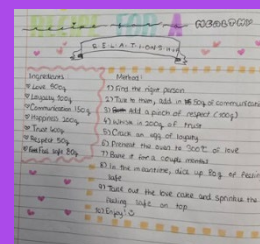 RECIPE FOR A HEALTHY
RELATIONSHIP
Ingredients
Love 500g
Loyalty 200g
Communication 150g
Happiness 200g
Trust 100g
Respect 50g
Feel safe 80g
Method:
1) Find the right person
2) Talk to them, add in 50g of communication
3) add a pinch of respect (100g)
4) Whisk in 200g of trust
5) Crack an egg of loyalty
6) Preheat the oven to 300°C of love
7) Bake it for a couple months
8) In the meantime, dich 80g of feeling
safe
9) Take out the love cake and sprinkle the
feeling safe on top
10) Enjoy!